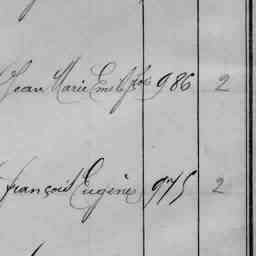 Jean Marie Emile 986 2
François Eugène 975 2